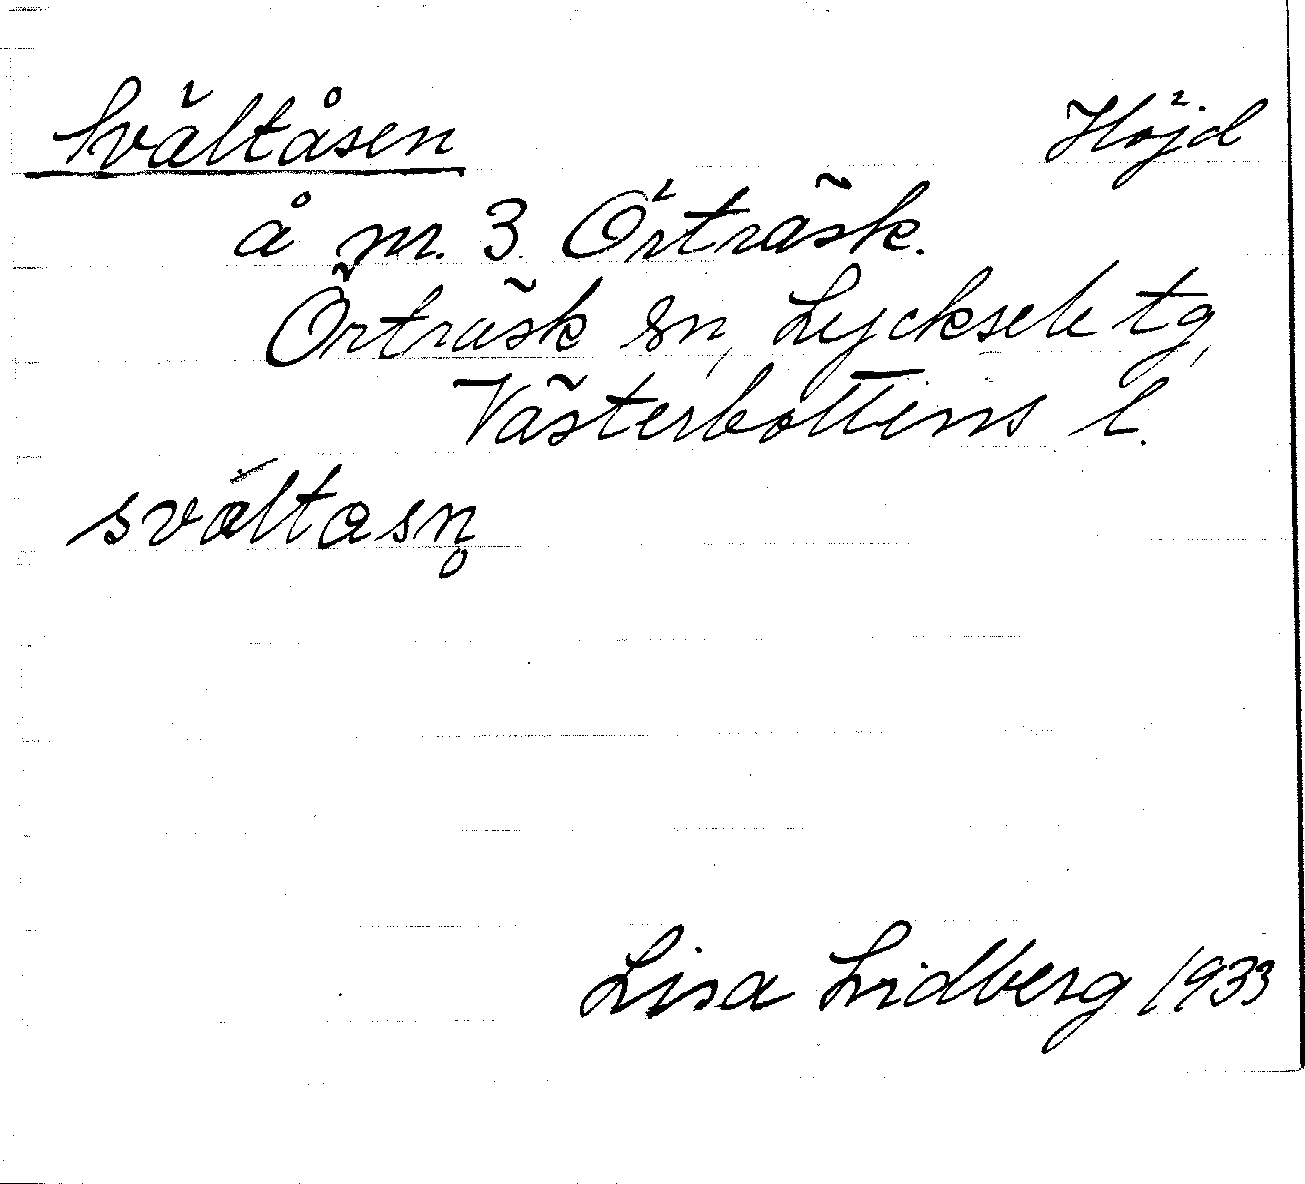 Svältåsen Höjd
å nr. 3 Örträsk.
Örträsk sn, Lycksele tg,
Västerbottens l.
svältasn̥
Lisa Lidberg 1933